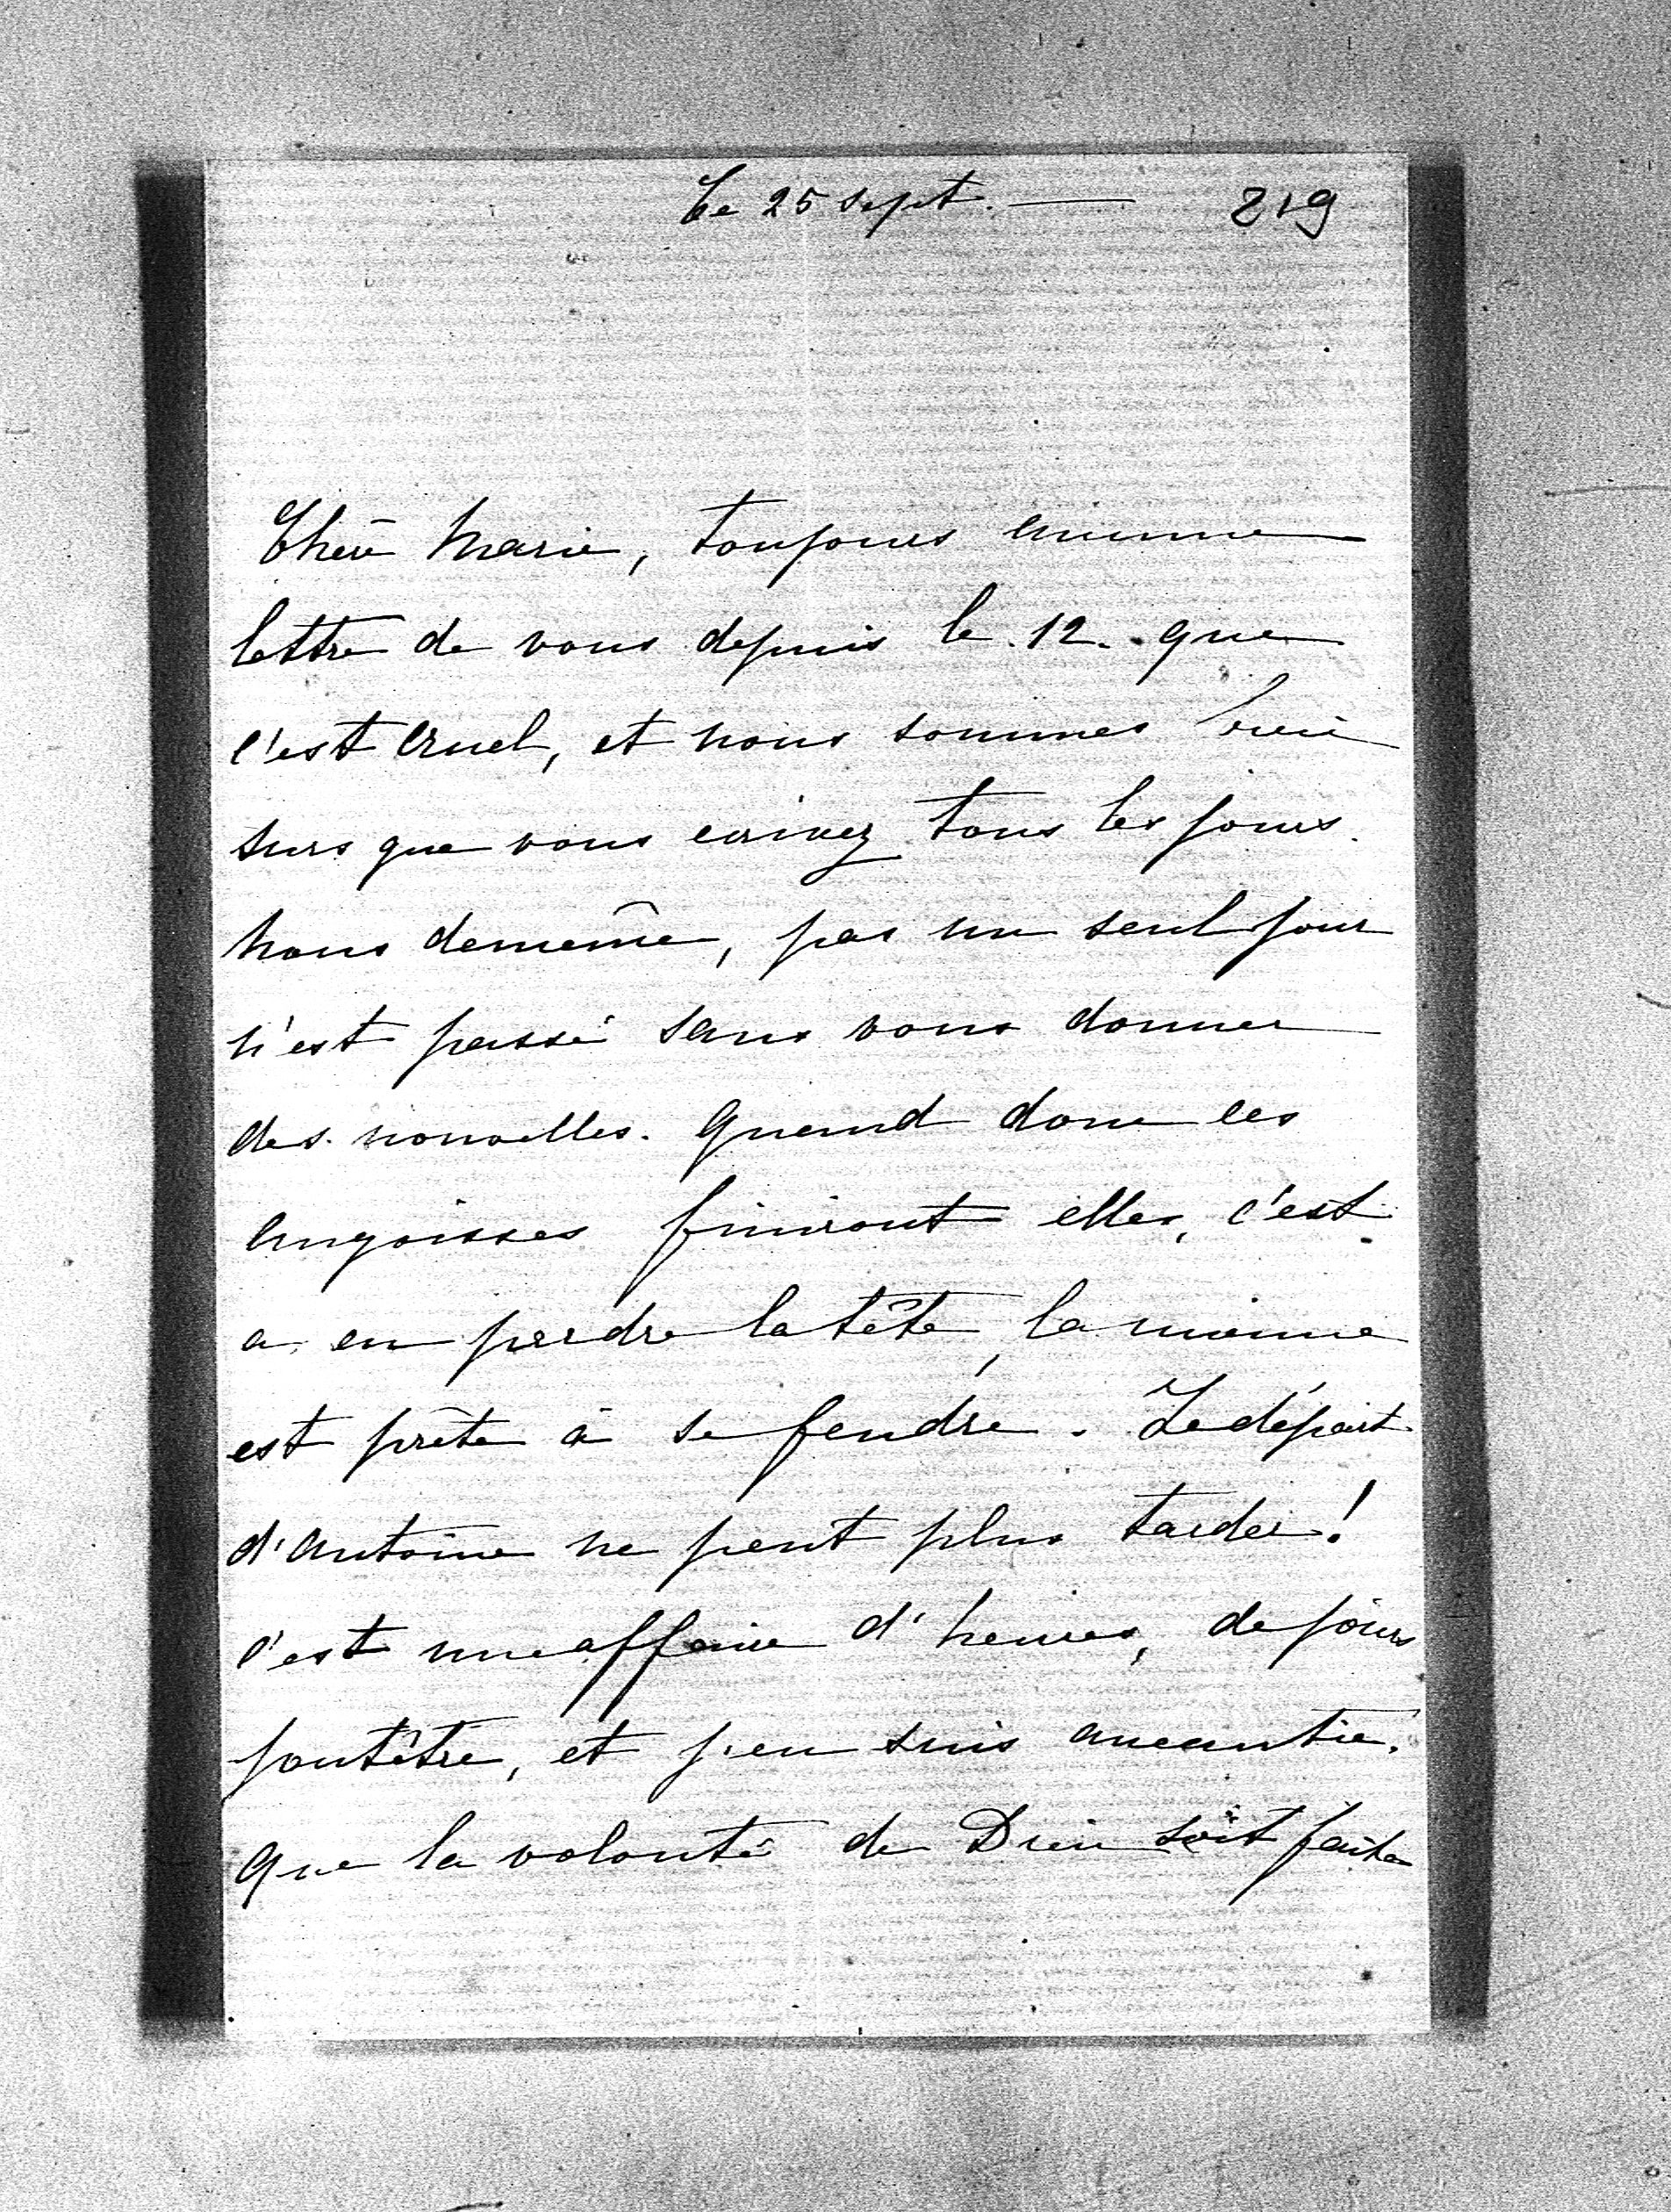 Ce 25 sept. — 219
Chère Marie, toujours aucune
lettre de vous depuis le 12. que
c'est cruel, et nous sommes bien
surs que vous ecrivez tous les jours.
Nous demême, pas un seul jour
n'est passé sans vous donner
des nouvelles. Quand donc ces
angoisses finiront elles, c'est
a en perdre la tête, la mienne
est prête à se fendre. Le départ
d'Antoine ne peut plus tarder!
c'est une affaire d'heures, de jours
peutêtre, et j'en suis aneantie.
Que la volonté de Dieu soit faite